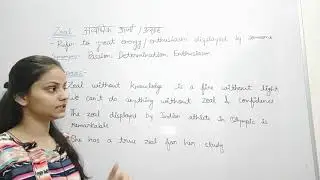 Zeal अत्यधिक ऊर्जा / उत्साह
- Refers to great energy / enthusiasm displayed by someone
Passion, Determination, Enthusiasm
Zeal without knowledge is a fire without light
we can't do anything without zeal & confidence
The zeal displayed by Indian athlets in Olympic is
remarkable
She has a true zeal for her study